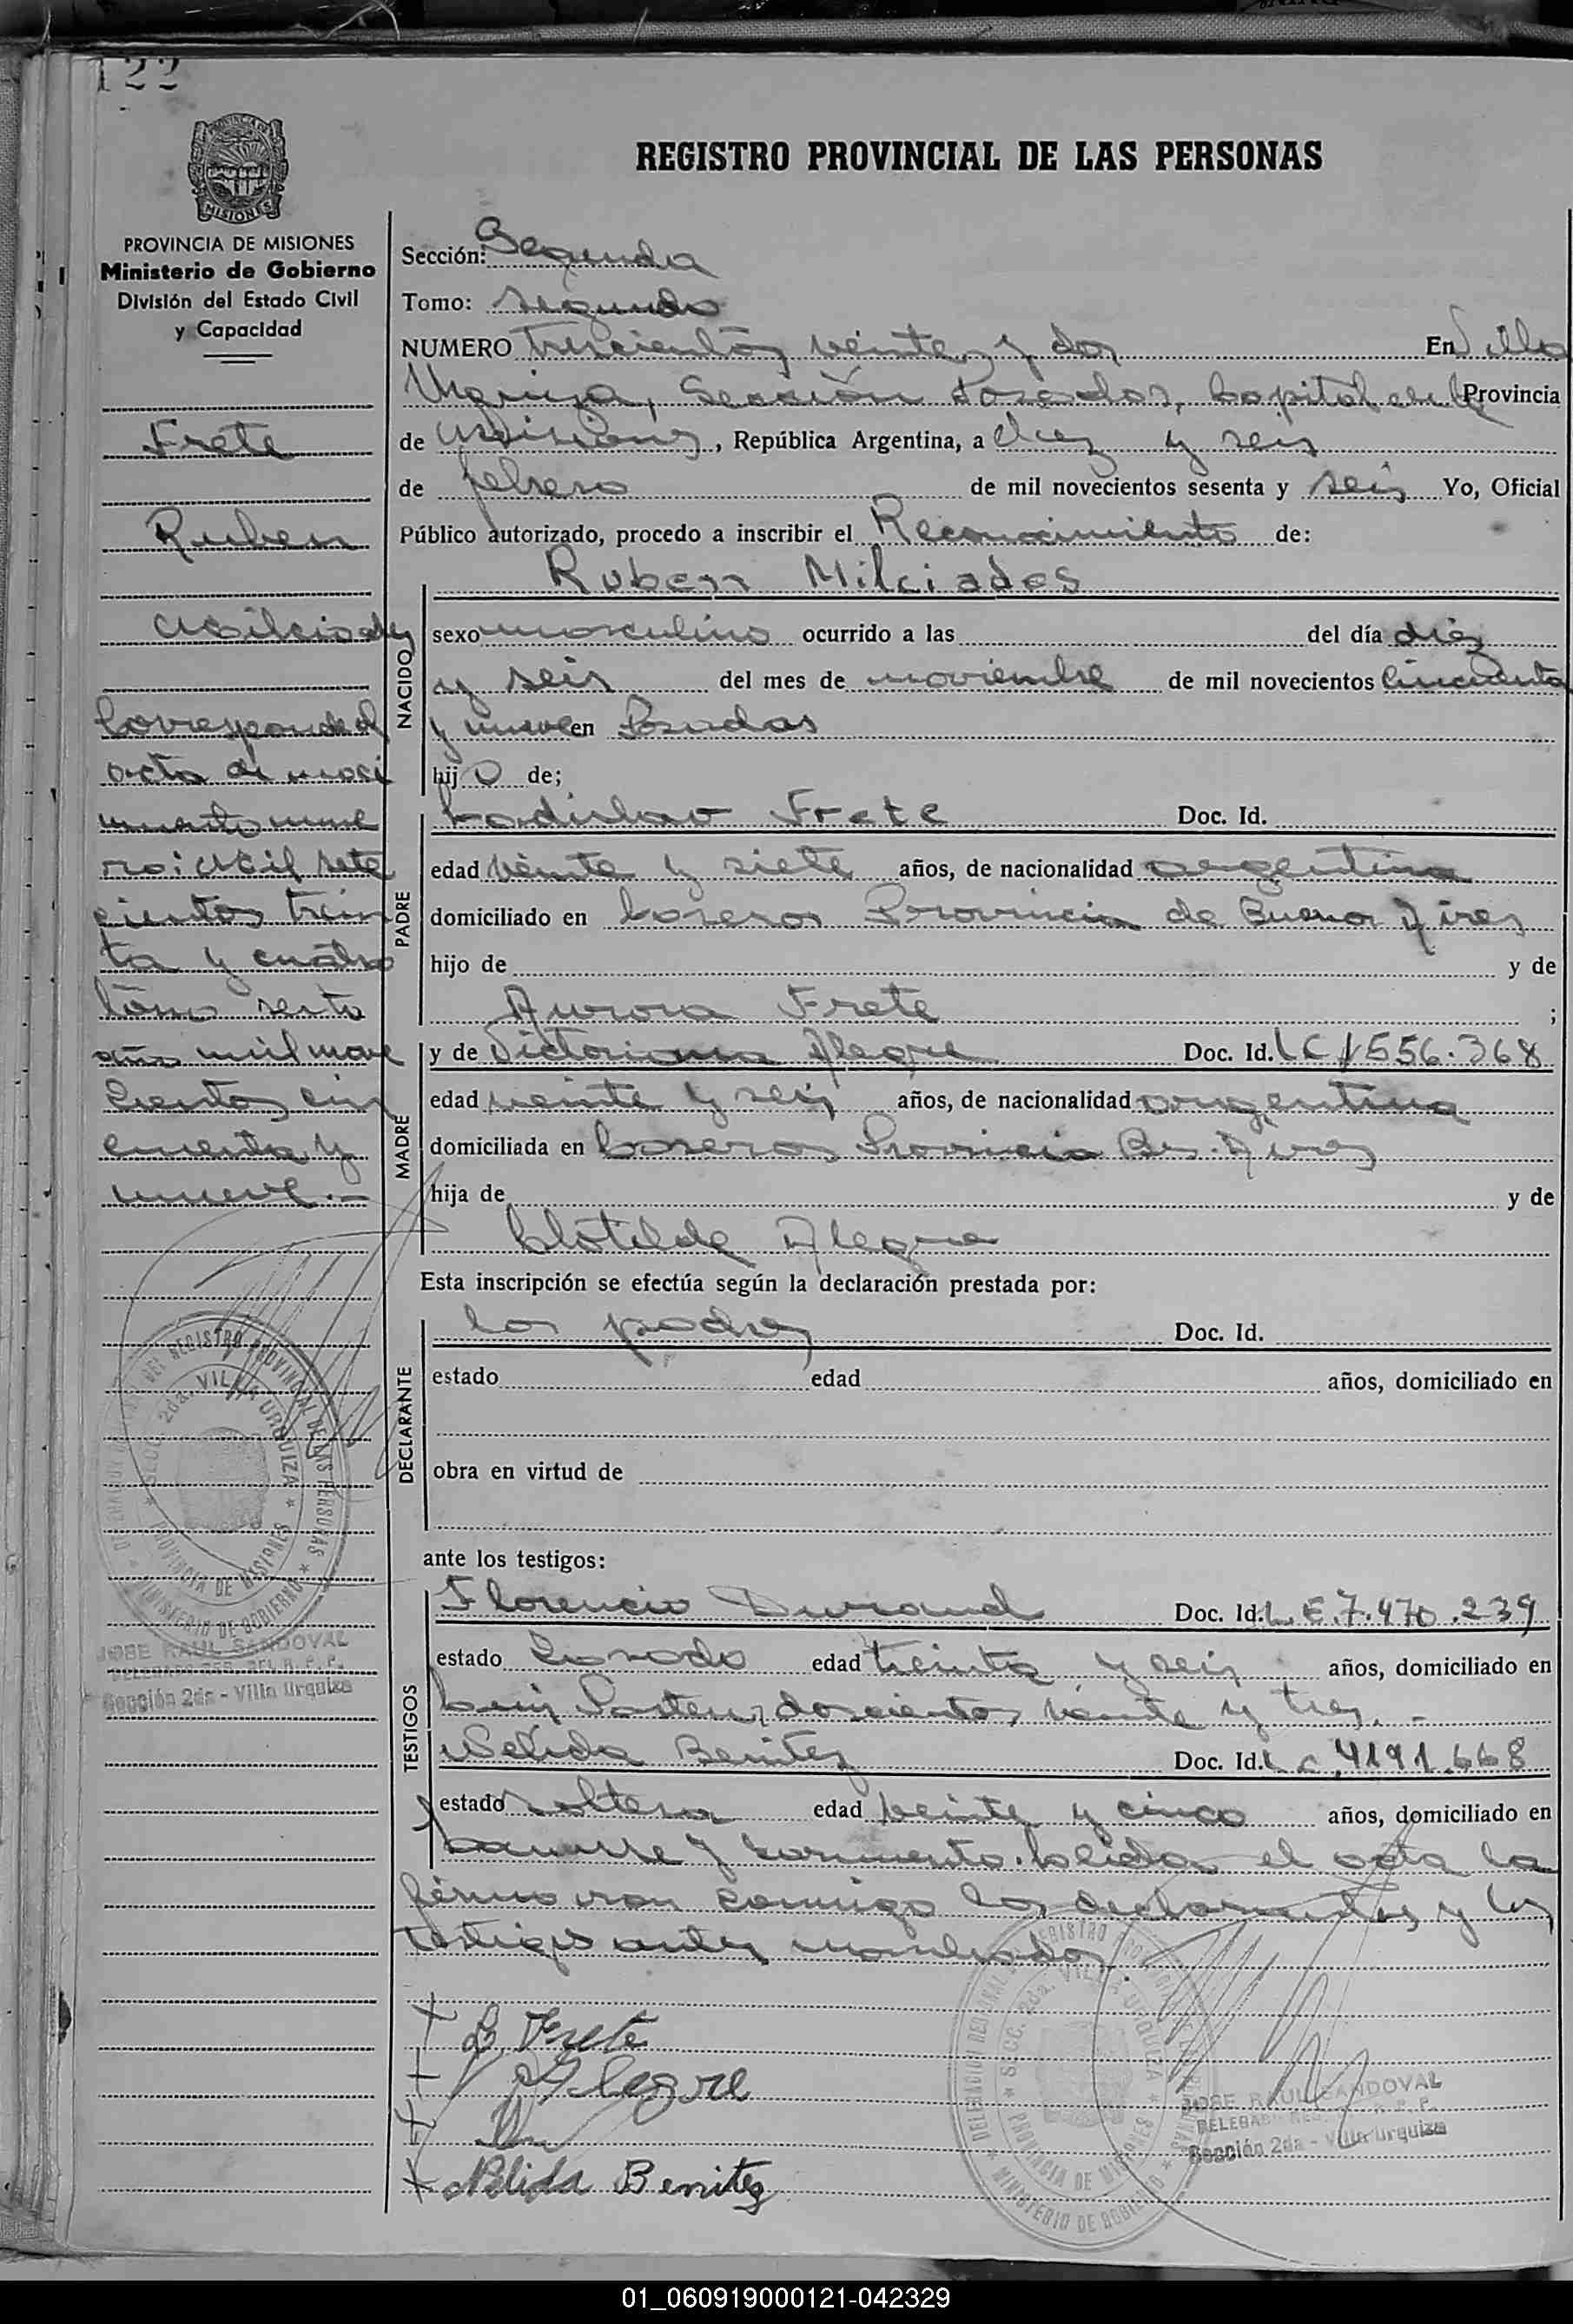 122
PROVINCIA DE MISIONES
Ministerio de Gobierno
División del Estado Civil
y Capacidad
Frete
Ruben
Milciades
Corresponde al
acta de naci
miento nume
ro: Mil sete
cientos trein
ta y cuatro
tomo sexto
año mil nove
cientos cin
cuenta y
nueve.-
REGISTRO PROVINCIAL DE LAS PERSONAS
Sección: Segunda
Tomo: segundo
NUMERO trescientos veinte y dos En Villa
Urquiza, Sección Posadas, Capital de la Provincia
de Misiones, República Argentina, a diez y seis
de febrero de mil novecientos sesenta y seis Yo, Oficial
Público autorizado, procedo a inscribir el Reconocimiento de:
Ruben Milciades
NACIDO
sexo masculino ocurrido a las del día diez
y seis del mes de noviembre de mil novecientos cincuenta
y nueve en Posadas
hijo de;
PADRE
Ladislao Frete Doc. Id.
edad veinte y siete años, de nacionalidad argentina
domiciliado en Caseros Provincia de Buenos Aires
hijo de y de
Aurora Frete ;
MADRE
y de Victoriana Alegre Doc. Id. LC 1556.368
edad veinte y seis años, de nacionalidad argentina
domiciliada en Caseros Provincia Bs. Aires
hija de y de
Clotilde Alegre
Esta inscripción se efectúa según la declaración prestada por:
DECLARANTE
los padres Doc. Id.
estado edad años, domiciliado en
obra en virtud de
ante los testigos:
TESTIGOS
Florencio Durand Doc. Id. L.E. 7.470.239
estado Casado edad treinta y seis años, domiciliado en
Luis Pasteur, doscientos veinte y tres.-
Nelida Benitez Doc. Id. L C. 4191.668
estado soltera edad veinte y cinco años, domiciliado en
y Sarmiento. Leida el acta la
firmaron conmigo los declarantes y los
testigos antes nombrados.
L. Frete
V Alegre
Nelida Benitez
DELEGACION REGIONAL DEL REGISTRO PROVINCIAL DE LAS PERSONAS
SECC. 2da. VILLA URQUIZA
PROVINCIA DE MISIONES
MINISTERIO DE GOBIERNO
JOSE RAUL SANDOVAL
DELEGADO REG. DEL R. P. P.
Sección 2da - Villa Urquiza
DELEGACION REGIONAL DEL REGISTRO PROVINCIAL DE LAS PERSONAS
SECC. 2da. VILLA URQUIZA
PROVINCIA DE MISIONES
MINISTERIO DE GOBIERNO
JOSE RAUL SANDOVAL
DELEGADO REG. DEL R. P. P.
Sección 2da - Villa Urquiza
01_060919000121-042329